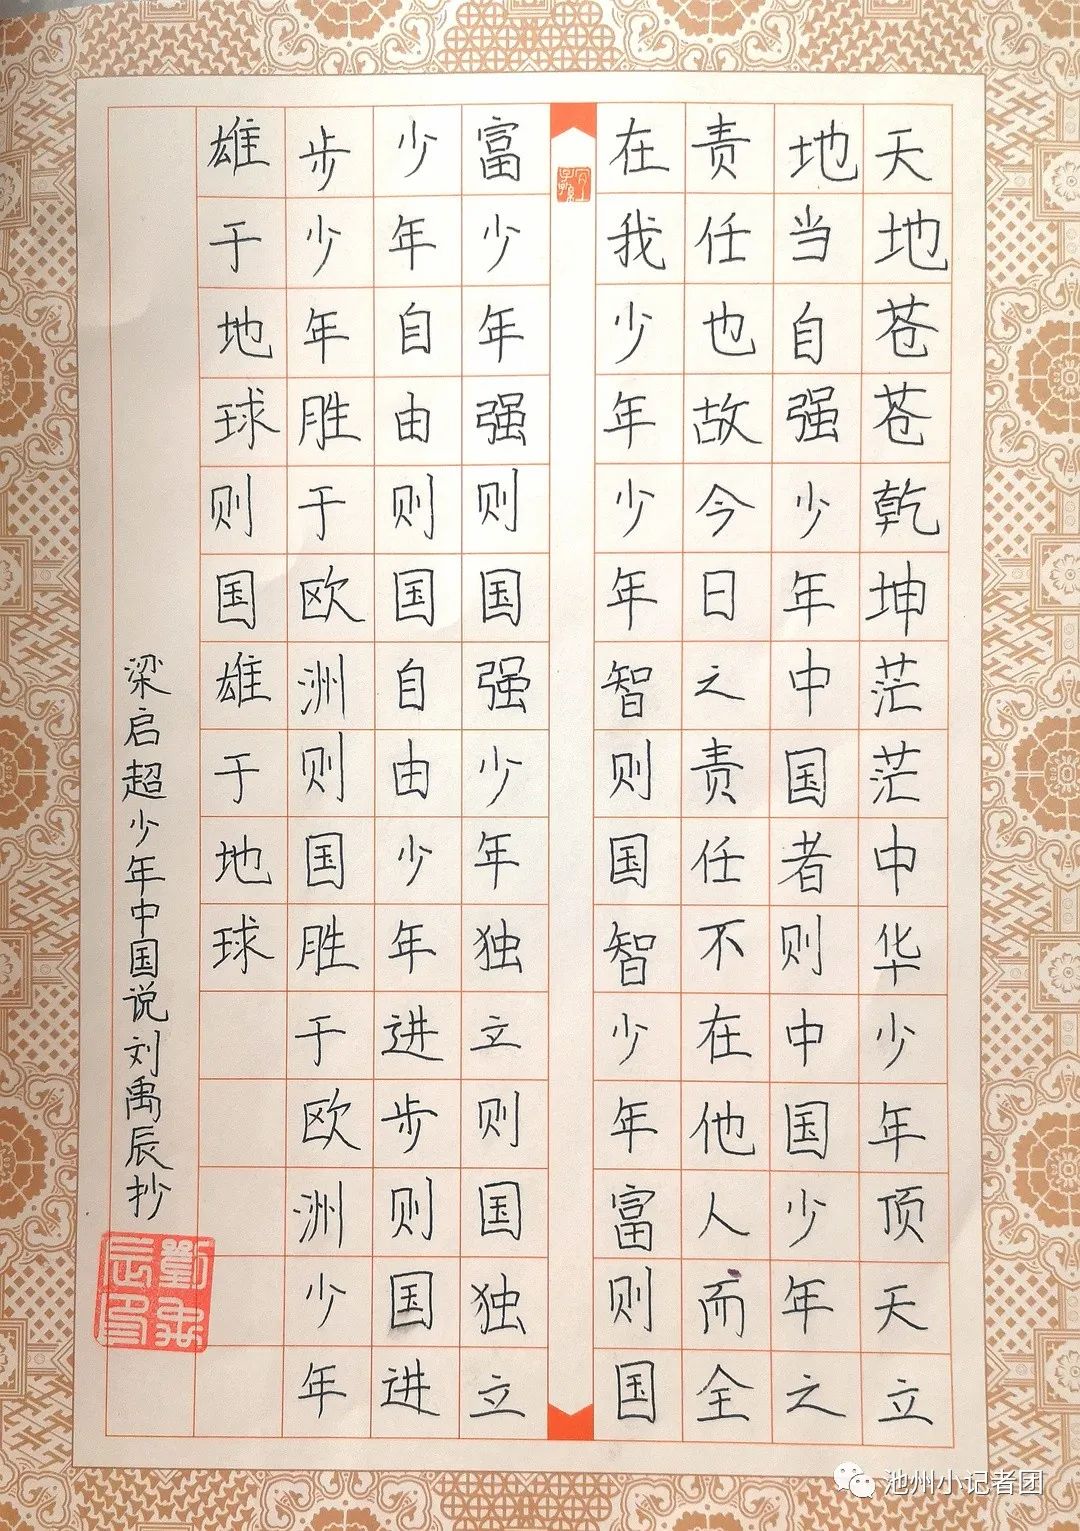 天地苍苍乾坤茫茫中华少年顶天立
地当自强少年中国者则中国少年之
责任也故今日之责任不在他人而全
在我少年少年智则国智少年富则国
富少年强则国强少年独立则国独立
少年自由则国自由少年进步则国进
步少年胜于欧洲则国胜于欧洲少年
雄于地球则国雄于地球
梁启超少年中国说刘禹辰抄
劉禹辰印
池州小记者团